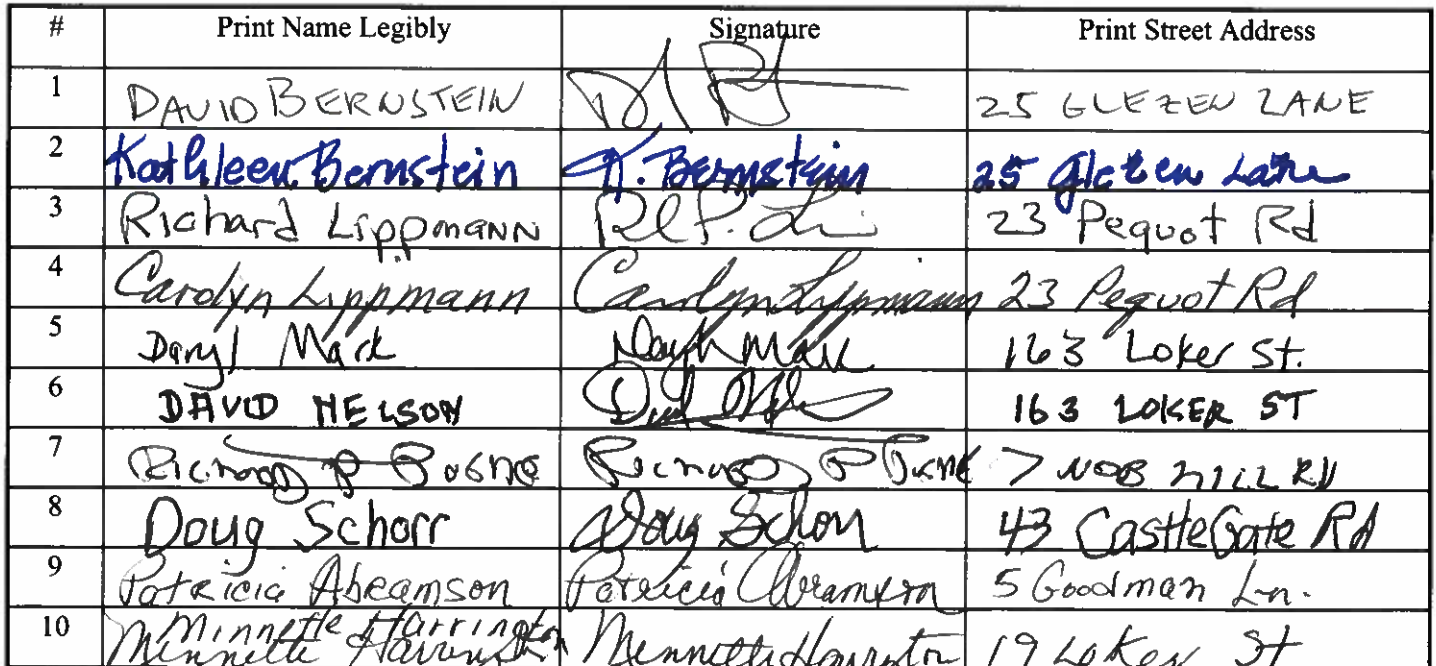 # Print Name Legibly Signature Print Street Address
1 DAVID BERNSTEIN 25 GLEZEN LANE
2 Kathleen Bernstein K. Bernstein 25 Glezen Lane
3 Richard Lippmann 23 Pequot Rd
4 Carolyn Lippmann Carolyn Lippmann 23 Pequot Rd
5 Daryl Mark Daryl Mark 163 Loker St.
6 DAVID NELSON 163 LOKER ST
7 Richard P Richard P 7 NOB HILL RD
8 Doug Schorr Doug Schorr 43 CastleGate Rd
9 Patricia Abramson Patricia Abramson 5 Goodman Ln.
10 Minnette Harrington Minnette Harrington 19 Loker St
Minnette Harrington